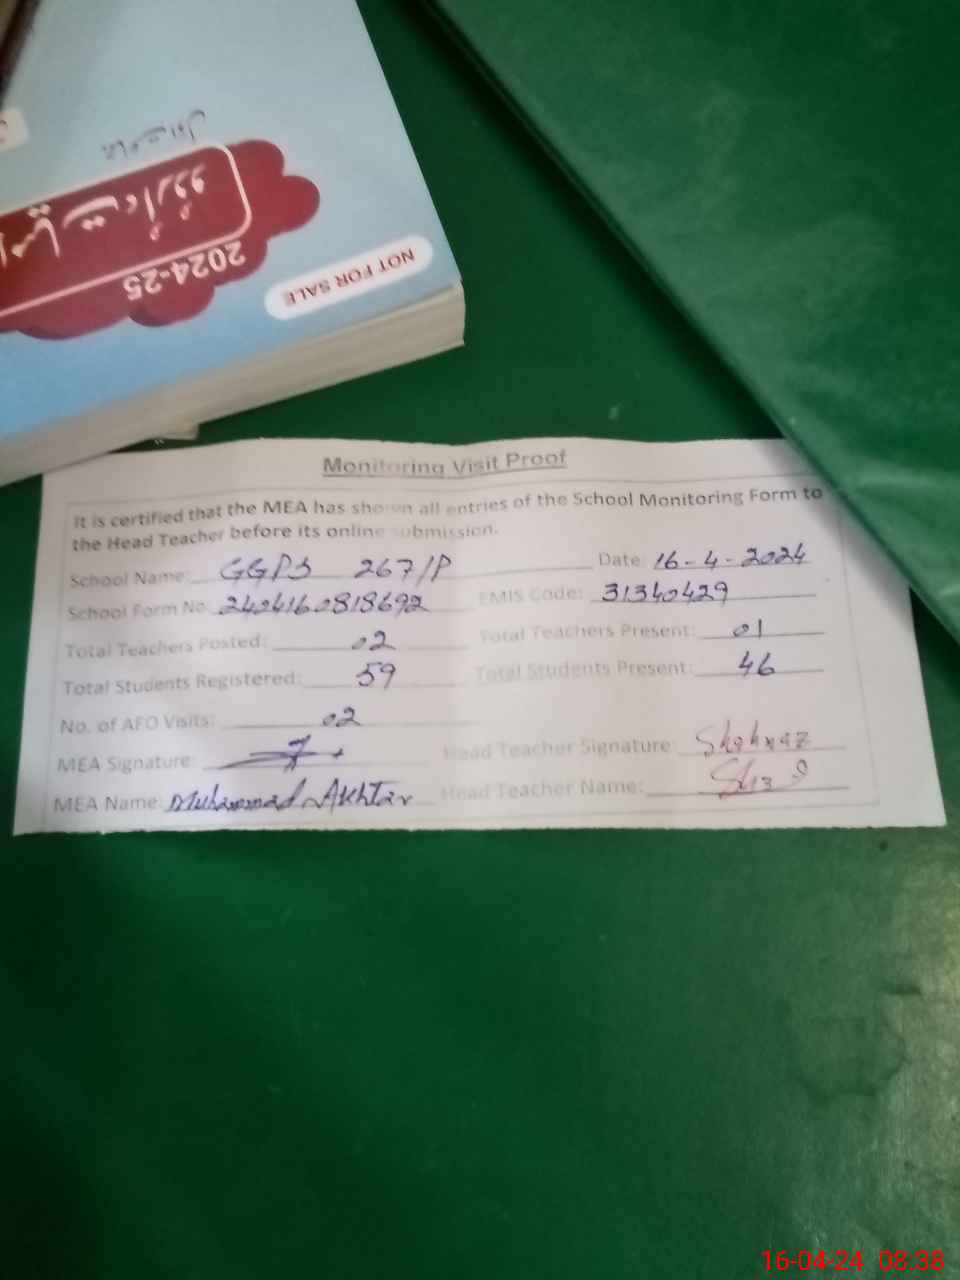 اسلامیات، اُردو
2024-25
NOT FOR SALE
Monitoring Visit Proof
It is certified that the MEA has shown all entries of the School Monitoring Form to
the Head Teacher before its online submission.
School Name: GGPS 267/P Date: 16-4-2024
School Form No. 2404160818692 EMIS Code: 31340429
Total Teachers Posted: 02 Total Teachers Present: 01
Total Students Registered: 59 Total Students Present: 46
No. of AFO Visits: 02
MEA Signature: Head Teacher Signature: Shahnaz
MEA Name: Muhammad Akhtar Head Teacher Name:
16-04-24 08:38